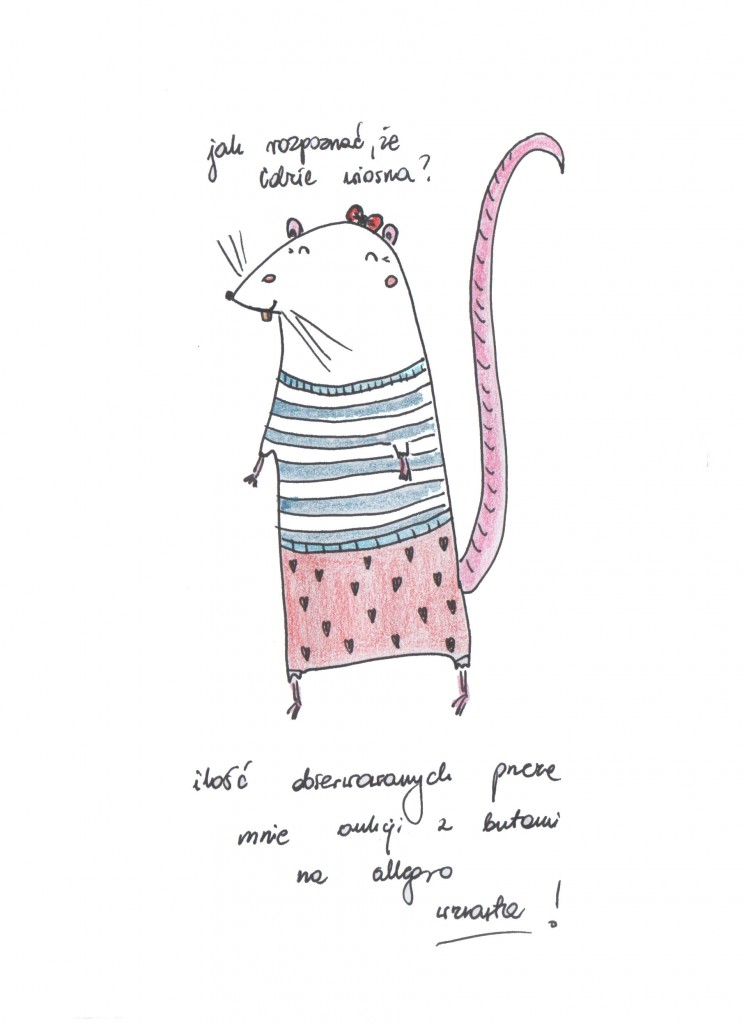 jak rozpoznać, że
idzie wiosna?
ilość obserwowanych przeze
mnie aukcji z butami
na allegro
wzrasta!